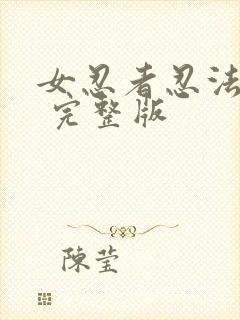 女忍者忍法
完整版
陳莹